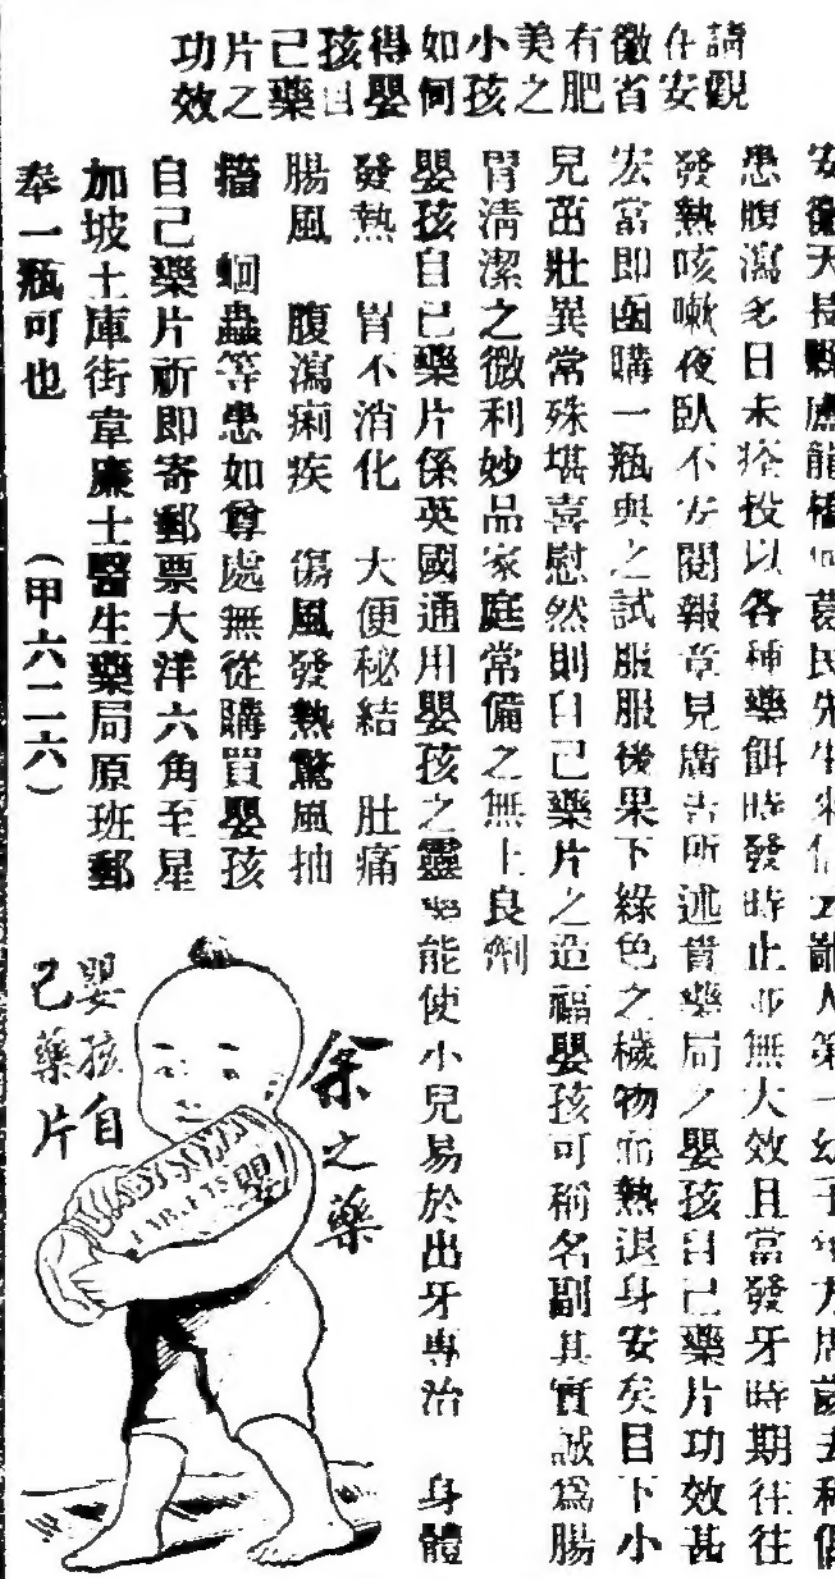 請觀
住安
徽省
有肥
美之
小孩
如何
得嬰
孩自
己藥
片之
功效
安徽天長縣 龍 葛民先生來信 鄙人第一幼子年方周歲去秋
患腹瀉多日未痊投以各種藥餌時發時止並無大效且當發牙時期往往
發熱咳嗽夜臥不安閱報章見廣告所述貴藥局之嬰孩自己藥片功效甚
宏當即函購一瓶與之試服服後果下綠色之穢物而熱退身安矣目下小
兒茁壯異常殊堪喜慰然則自己藥片之造福嬰孩可稱名副其實誠爲腸
胃清潔之微利妙品家庭常備之無上良劑
嬰孩自己藥片係英國通用嬰孩之靈 能使小兒易於出牙專治 身體
發熱 胃不消化 大便秘結 肚痛
腸風 腹瀉痢疾 傷風發熱驚風抽
搐 蛔蟲等患如尊處無從購買嬰孩
自己藥片祈即寄郵票大洋六角至星
加坡土庫街韋廉士醫生藥局原班郵
奉一瓶可也 (甲六二六)
余之藥
嬰孩自
己藥片
BABY'S OWN
TABLETS